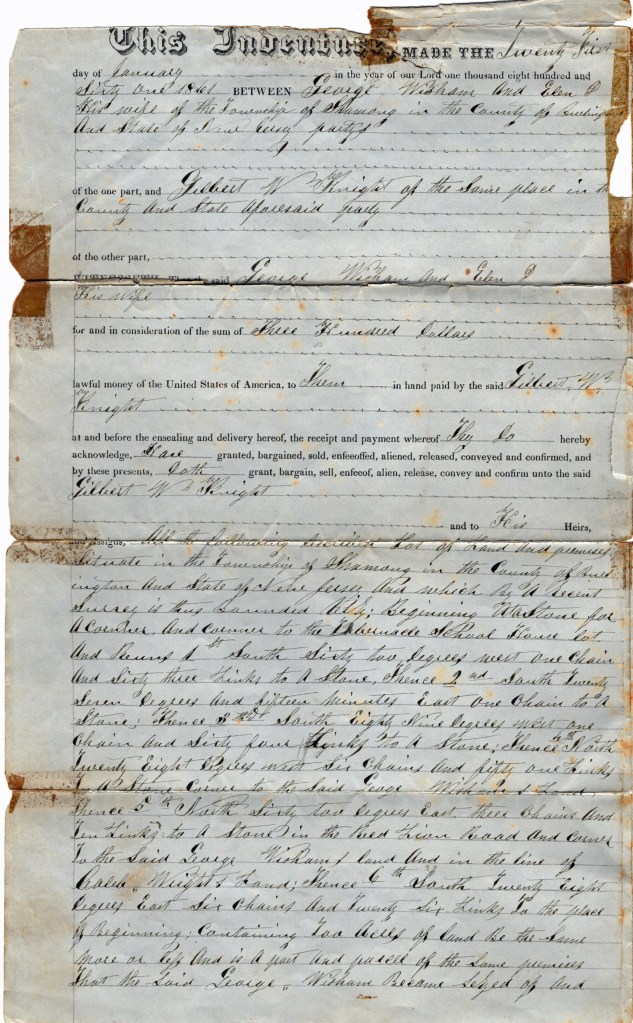 This Indenture, MADE THE Twenty First
day of January in the year of our Lord one thousand eight hundred and
Sixty one 1861 BETWEEN George Wisham And Elen P
His wife of the Township of Shamong in the County of Burling
And State of New Jersey partys
of the one part, and Gilbert W Knight of the Same place in the
County And State Aforesaid party
of the other part,
WITNESSETH, That the said George Wisham And Elen P
His wife
for and in consideration of the sum of Three Hundred Dollars
lawful money of the United States of America, to Them in hand paid by the said Gilbert W
Knight
at and before the ensealing and delivery hereof, the receipt and payment whereof They Do hereby
acknowledge, Have granted, bargained, sold, enfeoffed, aliened, released, conveyed and confirmed, and
by these presents, Doth grant, bargain, sell, enfeof, alien, release, convey and confirm unto the said
Gilbert W Knight
and to His Heirs,
and assigns, All th following Described Lot of Land And premises
Situate in the Township of Shamong in the County of Burl
ington And State of New Jersey And which by A Recent
Survey is thus bounded Viz; Beginning At A Stone for
A Corner And corner to the Tabernacle School House lot
And Runs 1st South Sixty two degrees west one Chain
And Sixty three Links to A Stone, Thence 2nd South Twenty
Seven Degrees And fifteen Minutes East one Chain to A
Stone; Thence 3rd South Eighty Nine Degrees west one
Chain And Sixty four Links to A Stone; Thence 4th North
Twenty Eight Degrees west Six Chains And fifty one Links
To A Stone Corner to the Said George Wisham s Land
Thence 5th North Sixty two degrees East three Chains And
Ten Links to A Stone in the Red Lion Road And Corner
To the Said George Wisham s land And in the line of
Caleb Wright s Land; Thence 6th South Twenty Eight
degrees East Six Chains And Twenty Six Links To the place
of Beginning; Containing Two Acres of land Be the Same
more or less And is A part And parcel of the Same premises
That the Said George Wisham Became Seized of And